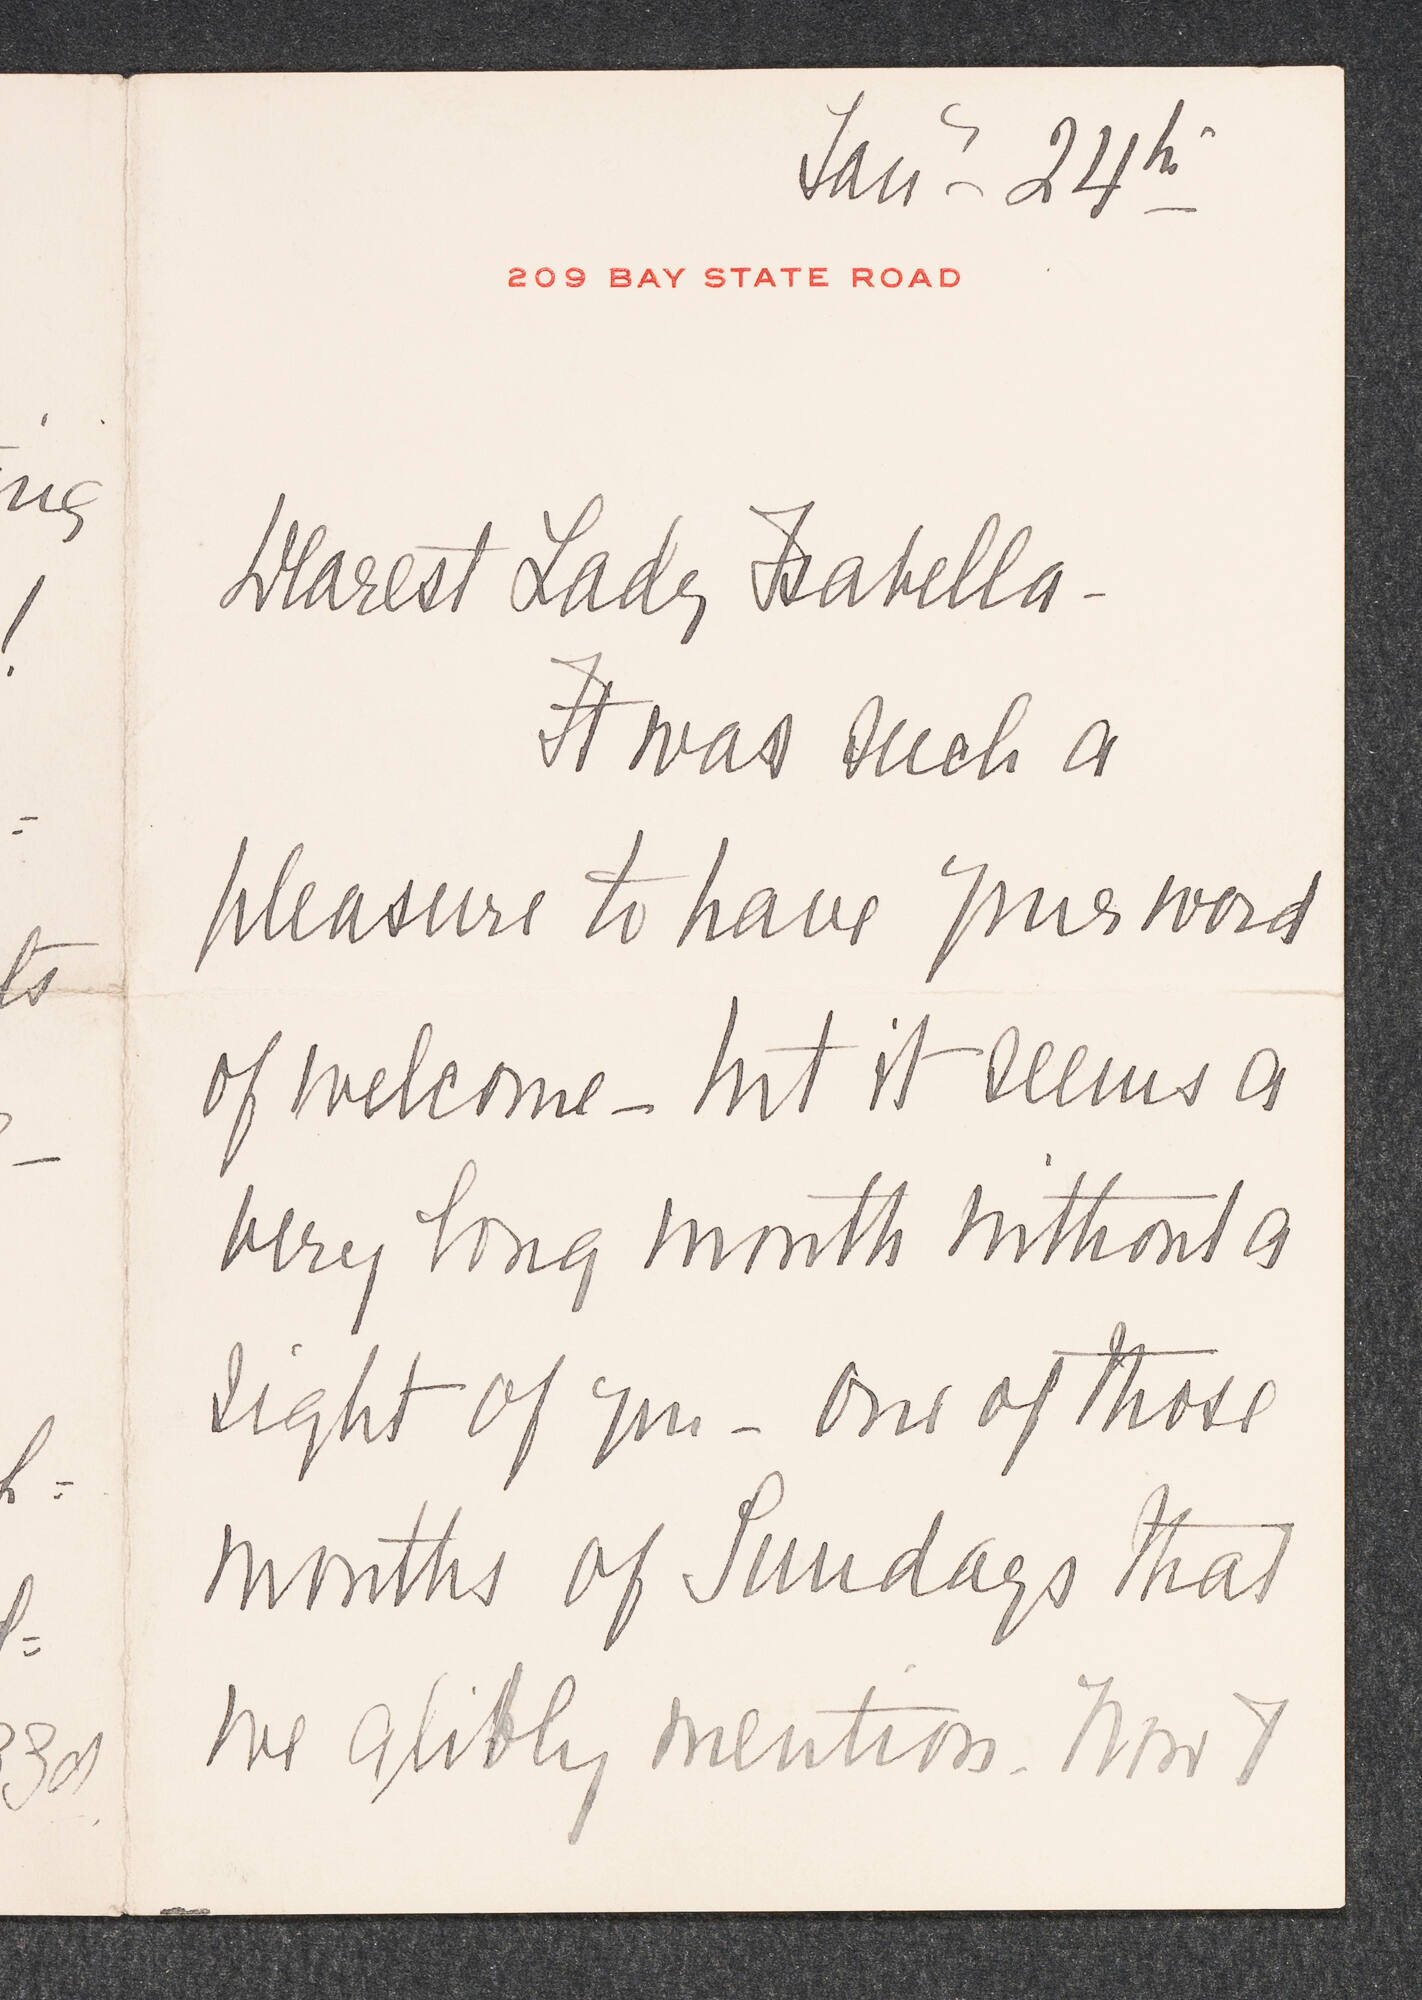 Jan^y - 24th
209 BAY STATE ROAD
Dearest Lady Isabella -
It was such a
pleasure to have your word
of welcome - but it seems a
very long month without a
sight of you - one of those
months of Sundays that
we glibly mention. Now I